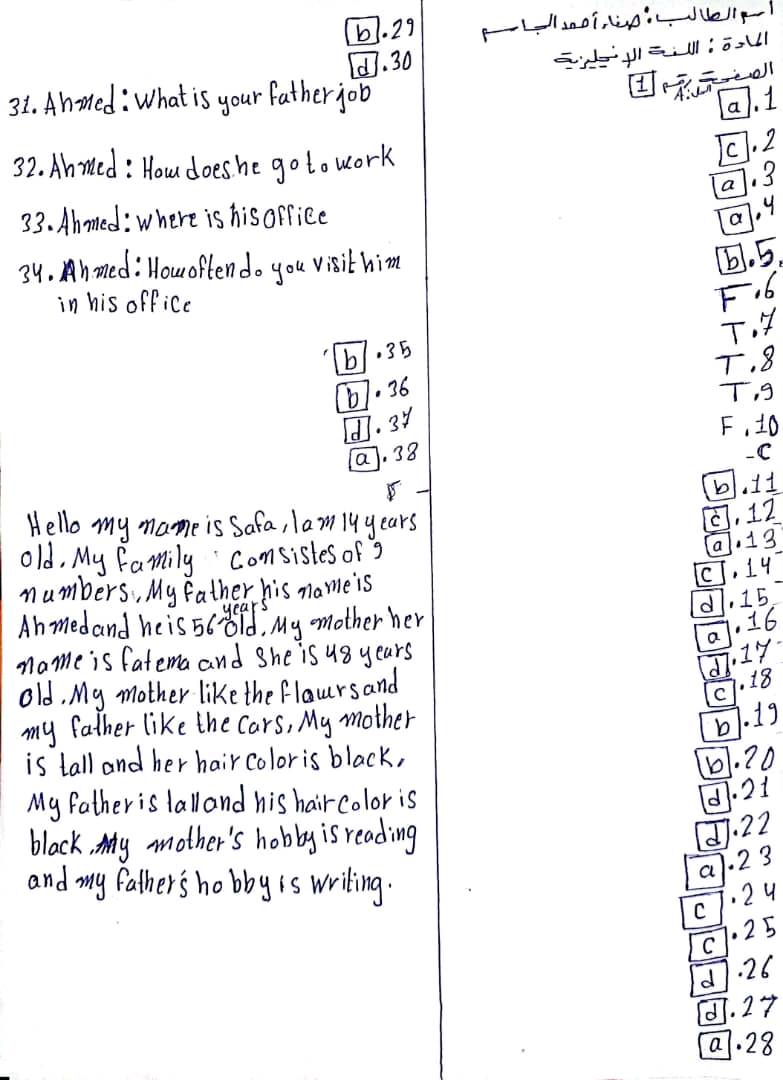 اسم الطالب: صفاء أحمد الجاسم
المادة: اللغة الإنجليزية
الصفحة رقم 1
a .1
c .2
a .3
a .4
b .5
F .6
T .7
T .8
T .9
F .10
-C
b .11
c .12
a .13
c .14
d .15
a .16
d .17
c .18
b .19
b .20
d .21
d .22
a .23
c .24
c .25
d .26
d .27
a .28
b .29
d .30
31. Ahmed: What is your father job
32. Ahmed: How does he go to work
33. Ahmed: where is his office
34. Ahmed: How often do you visit him
in his office
b .35
b .36
d .37
a .38
Hello my name is Safa, I am 14 years
old. My family consistes of 9
numbers. My father his name is
Ahmed and he is 56 years old. My mother her
name is fatema and She is 48 years
old. My mother like the flawrs and
my father like the Cars, My mother
is tall and her hair color is black,
My father is tall and his hair color is
black. My mother's hobby is reading
and my father's hobby is writing.